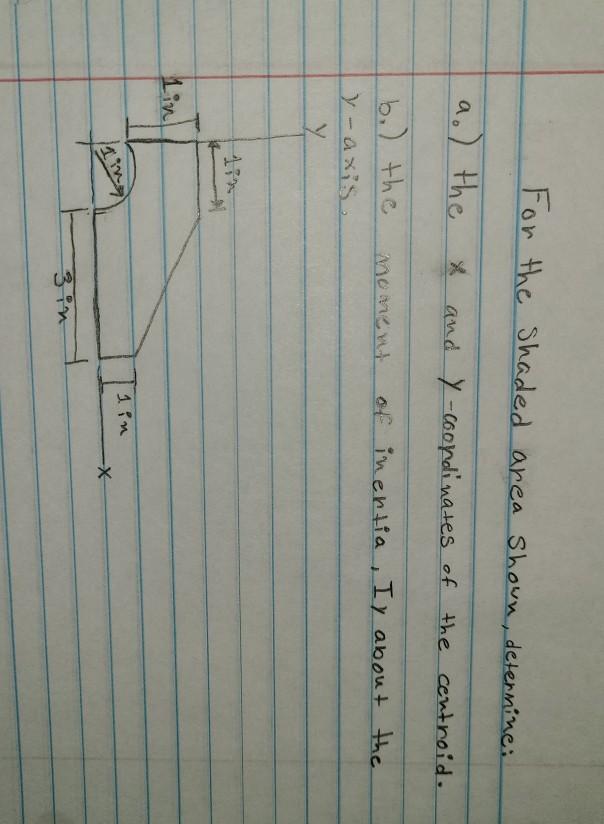 For the shaded area shown, determine:
a.) the x and y-coordinates of the centroid.
b.) the moment of inertia, Iy about the
y-axis.
y
1in
1in
1in
1in
3in
x